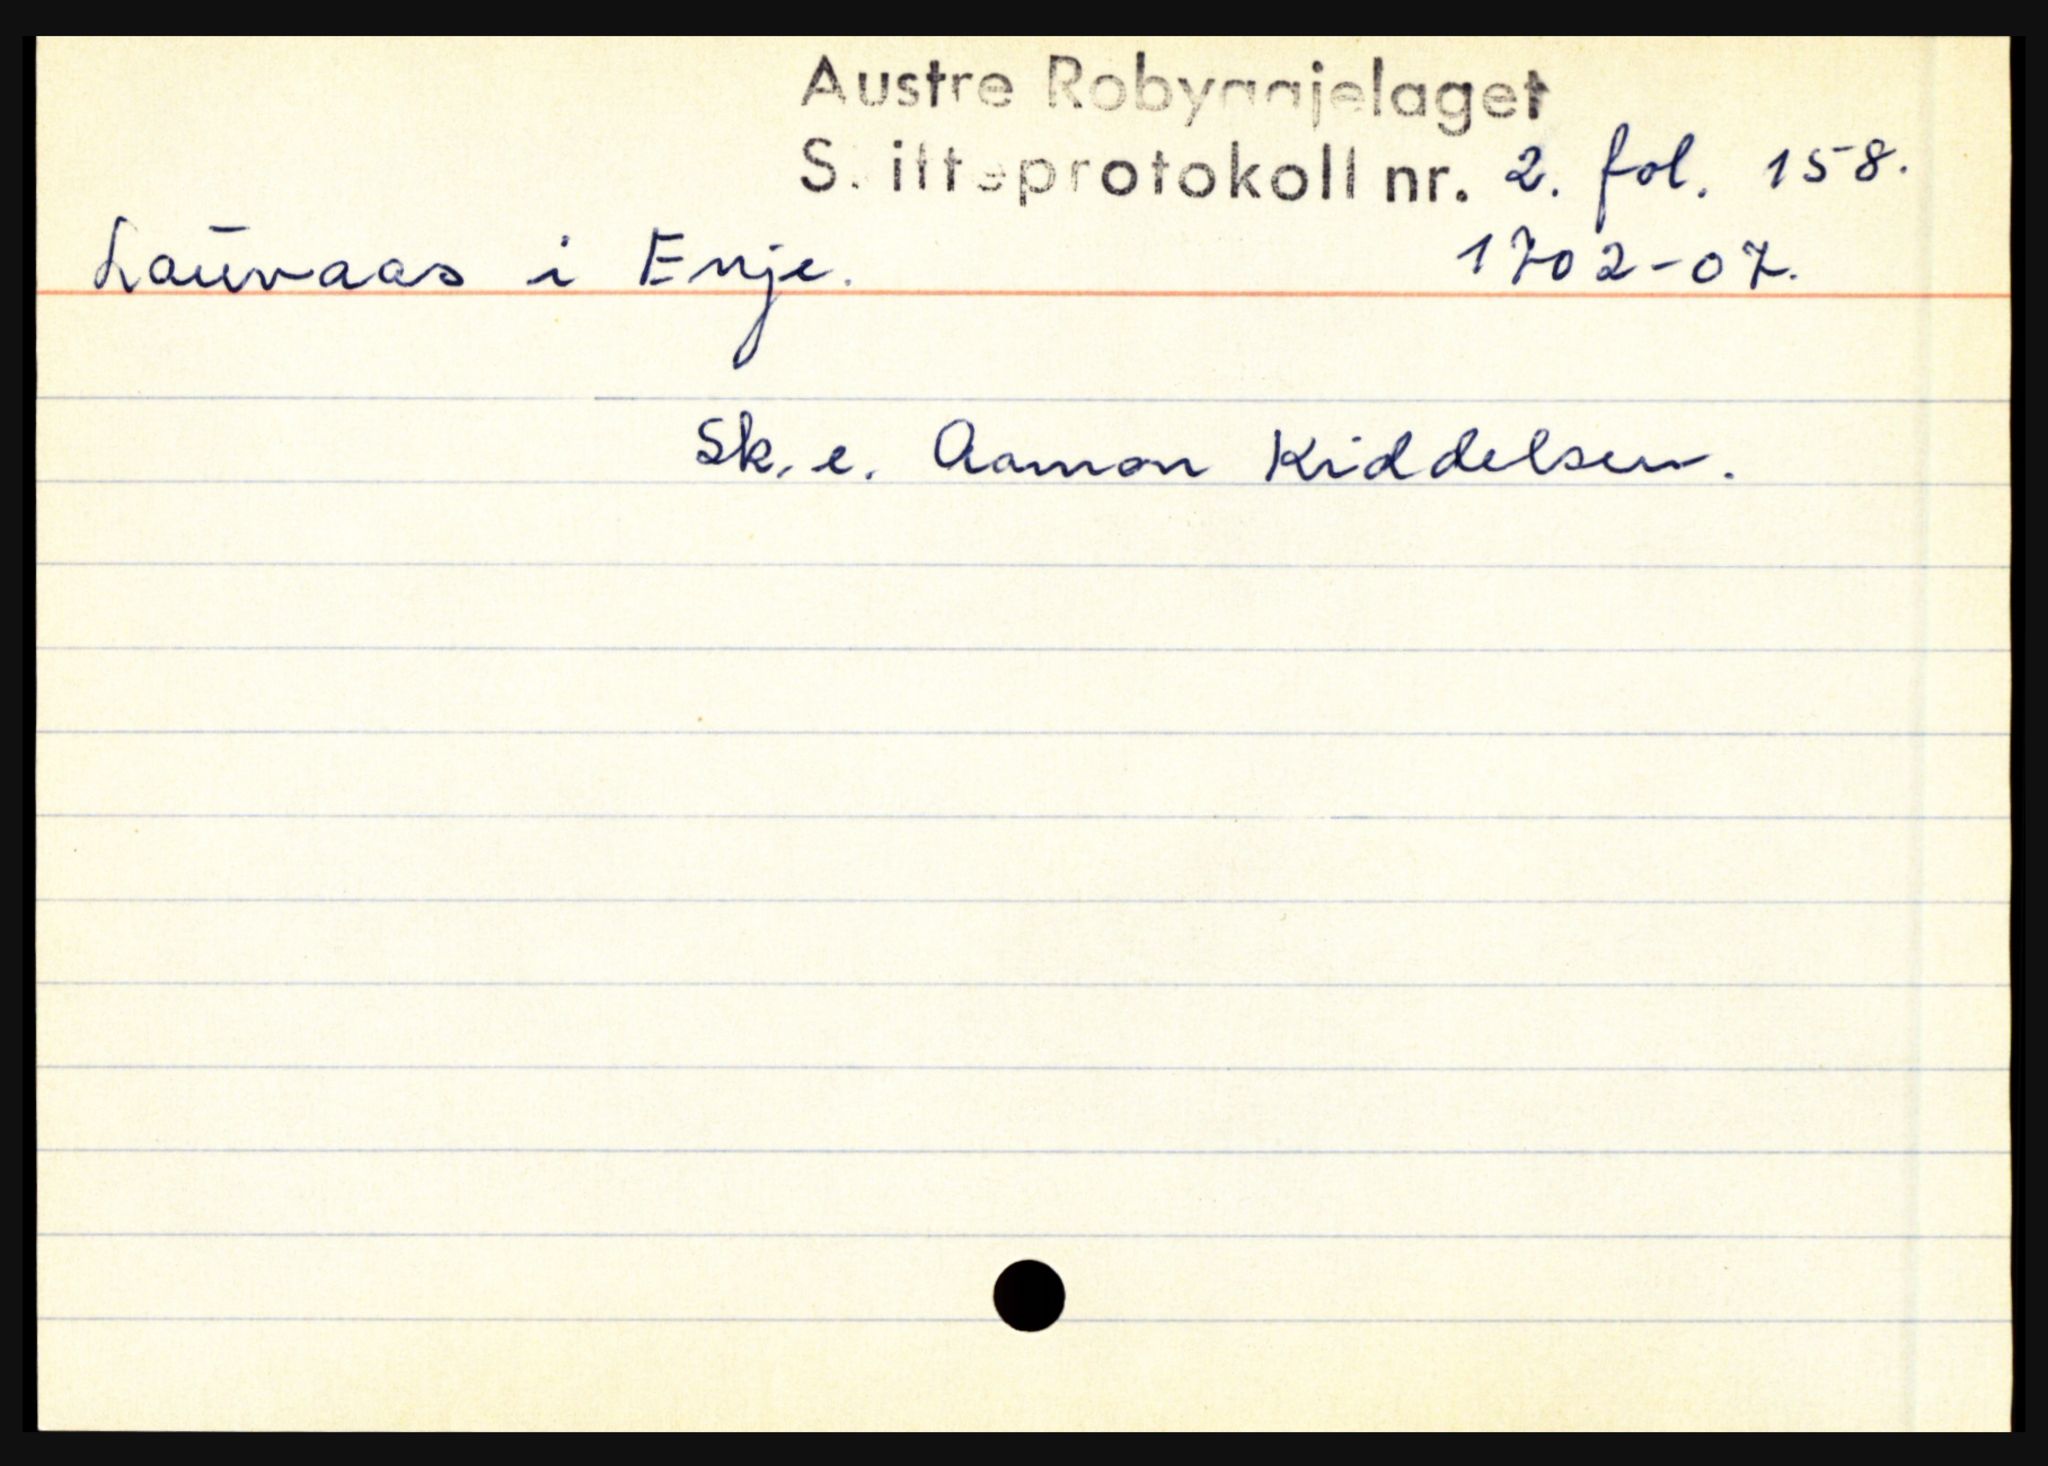 Austre Robyggjelaget
Skifteprotokoll nr. 2. fol. 158.
Lauvaas i Enje. 1702-07.
Sk. e. Aamon Kiddelsen.